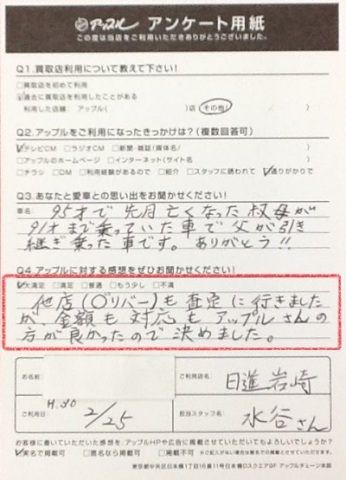 アップル アンケート用紙
この度は当店をご利用いただきありがとうございました。
Q1.買取店利用について教えて下さい!
□買取店を初めて利用
☑過去に買取店を利用したことがある
利用した店舗 アップル( )店 その他( )
Q2.アップルをご利用になったきっかけは?(複数回答可)
☑テレビCM □ラジオCM □新聞・雑誌(媒体名/ )
□アップルのホームページ □インターネット(サイト名 )
□チラシ □DM □利用経験があるので □紹介 □スタッフに誘われて ☑通りがかりで
Q3.あなたと愛車との思い出をお聞かせください!
車名:
95才で先月亡くなった叔母が
91才まで乗っていた車で父が引き
継ぎ乗った車です。ありがとう!!
Q4.アップルに対する感想をぜひお聞かせください!
☑大満足 □満足 □普通 □もう少し □不満
他店(〇リバー)も査定に行きました
が、金額も対応もアップルさんの
方が良かったので決めました。
お名前
ご利用店名: 日進岩崎
ご利用日 H.30 2/25
担当スタッフ名: 水谷さん
お客様に書いていただいた感想を、アップルHPや広告に掲載させていただいてもよろしいでしょうか?
☑実名で掲載可 □匿名なら掲載可 □掲載不可